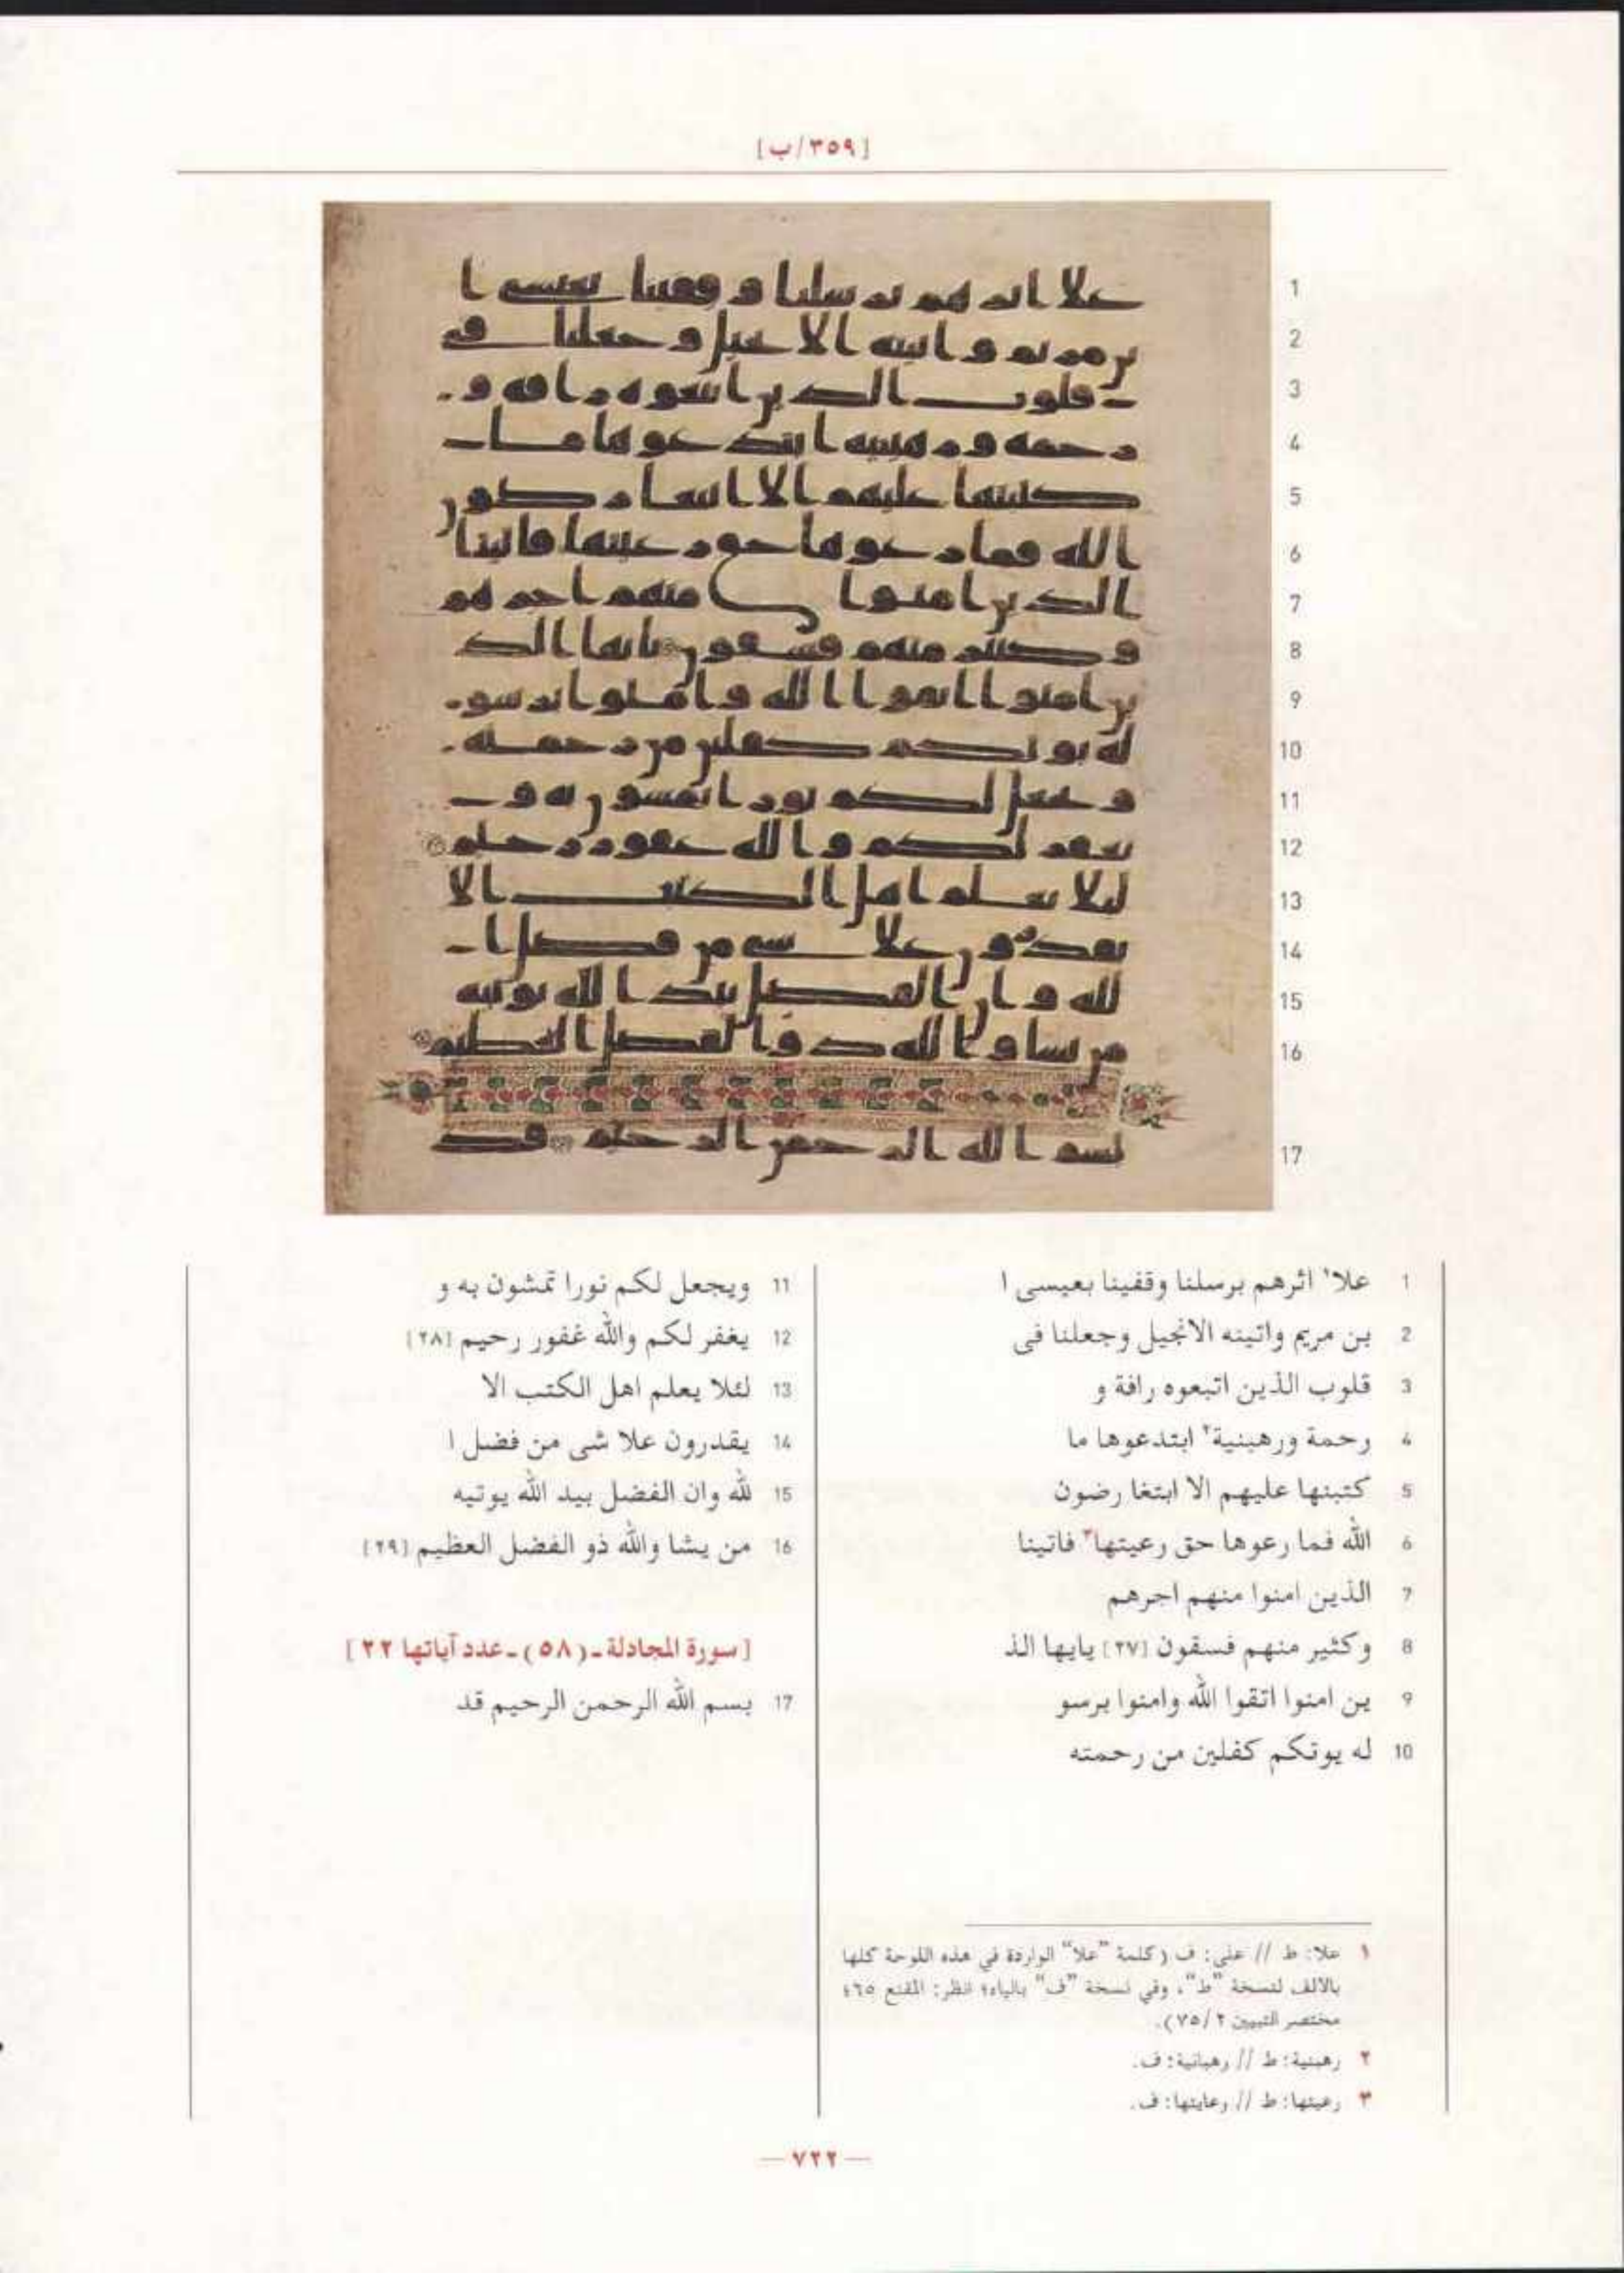 [٣٥٩/ب]
1 علا١ اثرهم برسلنا وقفينا بعيسى ا
2 بن مريم واتينه الانجيل وجعلنا فى
3 قلوب الذين اتبعوه رافة و
4 رحمة ورهبنية٢ ابتدعوها ما
5 كتبنها عليهم الا ابتغا رضون
6 الله فما رعوها حق رعيتها٣ فاتينا
7 الذين امنوا منهم اجرهم
8 وكثير منهم فسقون [٢٧] يايها الذ
9 ين امنوا اتقوا الله وامنوا برسو
10 له يوتكم كفلين من رحمته
11 ويجعل لكم نورا تمشون به و
12 يغفر لكم والله غفور رحيم [٢٨]
13 لئلا يعلم اهل الكتب الا
14 يقدرون علا شى من فضل ا
15 لله وان الفضل بيد الله يوتيه
16 من يشا والله ذو الفضل العظيم [٢٩]
[سورة المجادلة ـ (٥٨) ـ عدد آياتها ٢٢]
17 بسم الله الرحمن الرحيم قد
١ علا: ط // على: ف (كلمة "علا" الواردة في هذه اللوحة كلها
بالالف لنسخة "ط"، وفي نسخة "ف" بالياء؛ انظر: المقنع ٦٥؛
مختصر التبيين ٢/٧٥).
٢ رهبنية: ط // رهبانية: ف.
٣ رعيتها: ط // رعايتها: ف.
— ٧٢٢ —